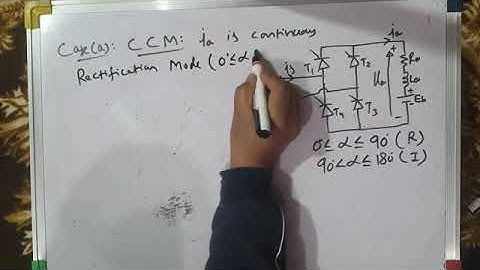 Case(a): CCM: ia is continuous
Rectification Mode (0°≤α≤
is
T1
T2
T4
T3
ia
+
Va
-
Ra
La
+
Eb
-
0≤ α ≤ 90° (R)
90<α≤180° (I)